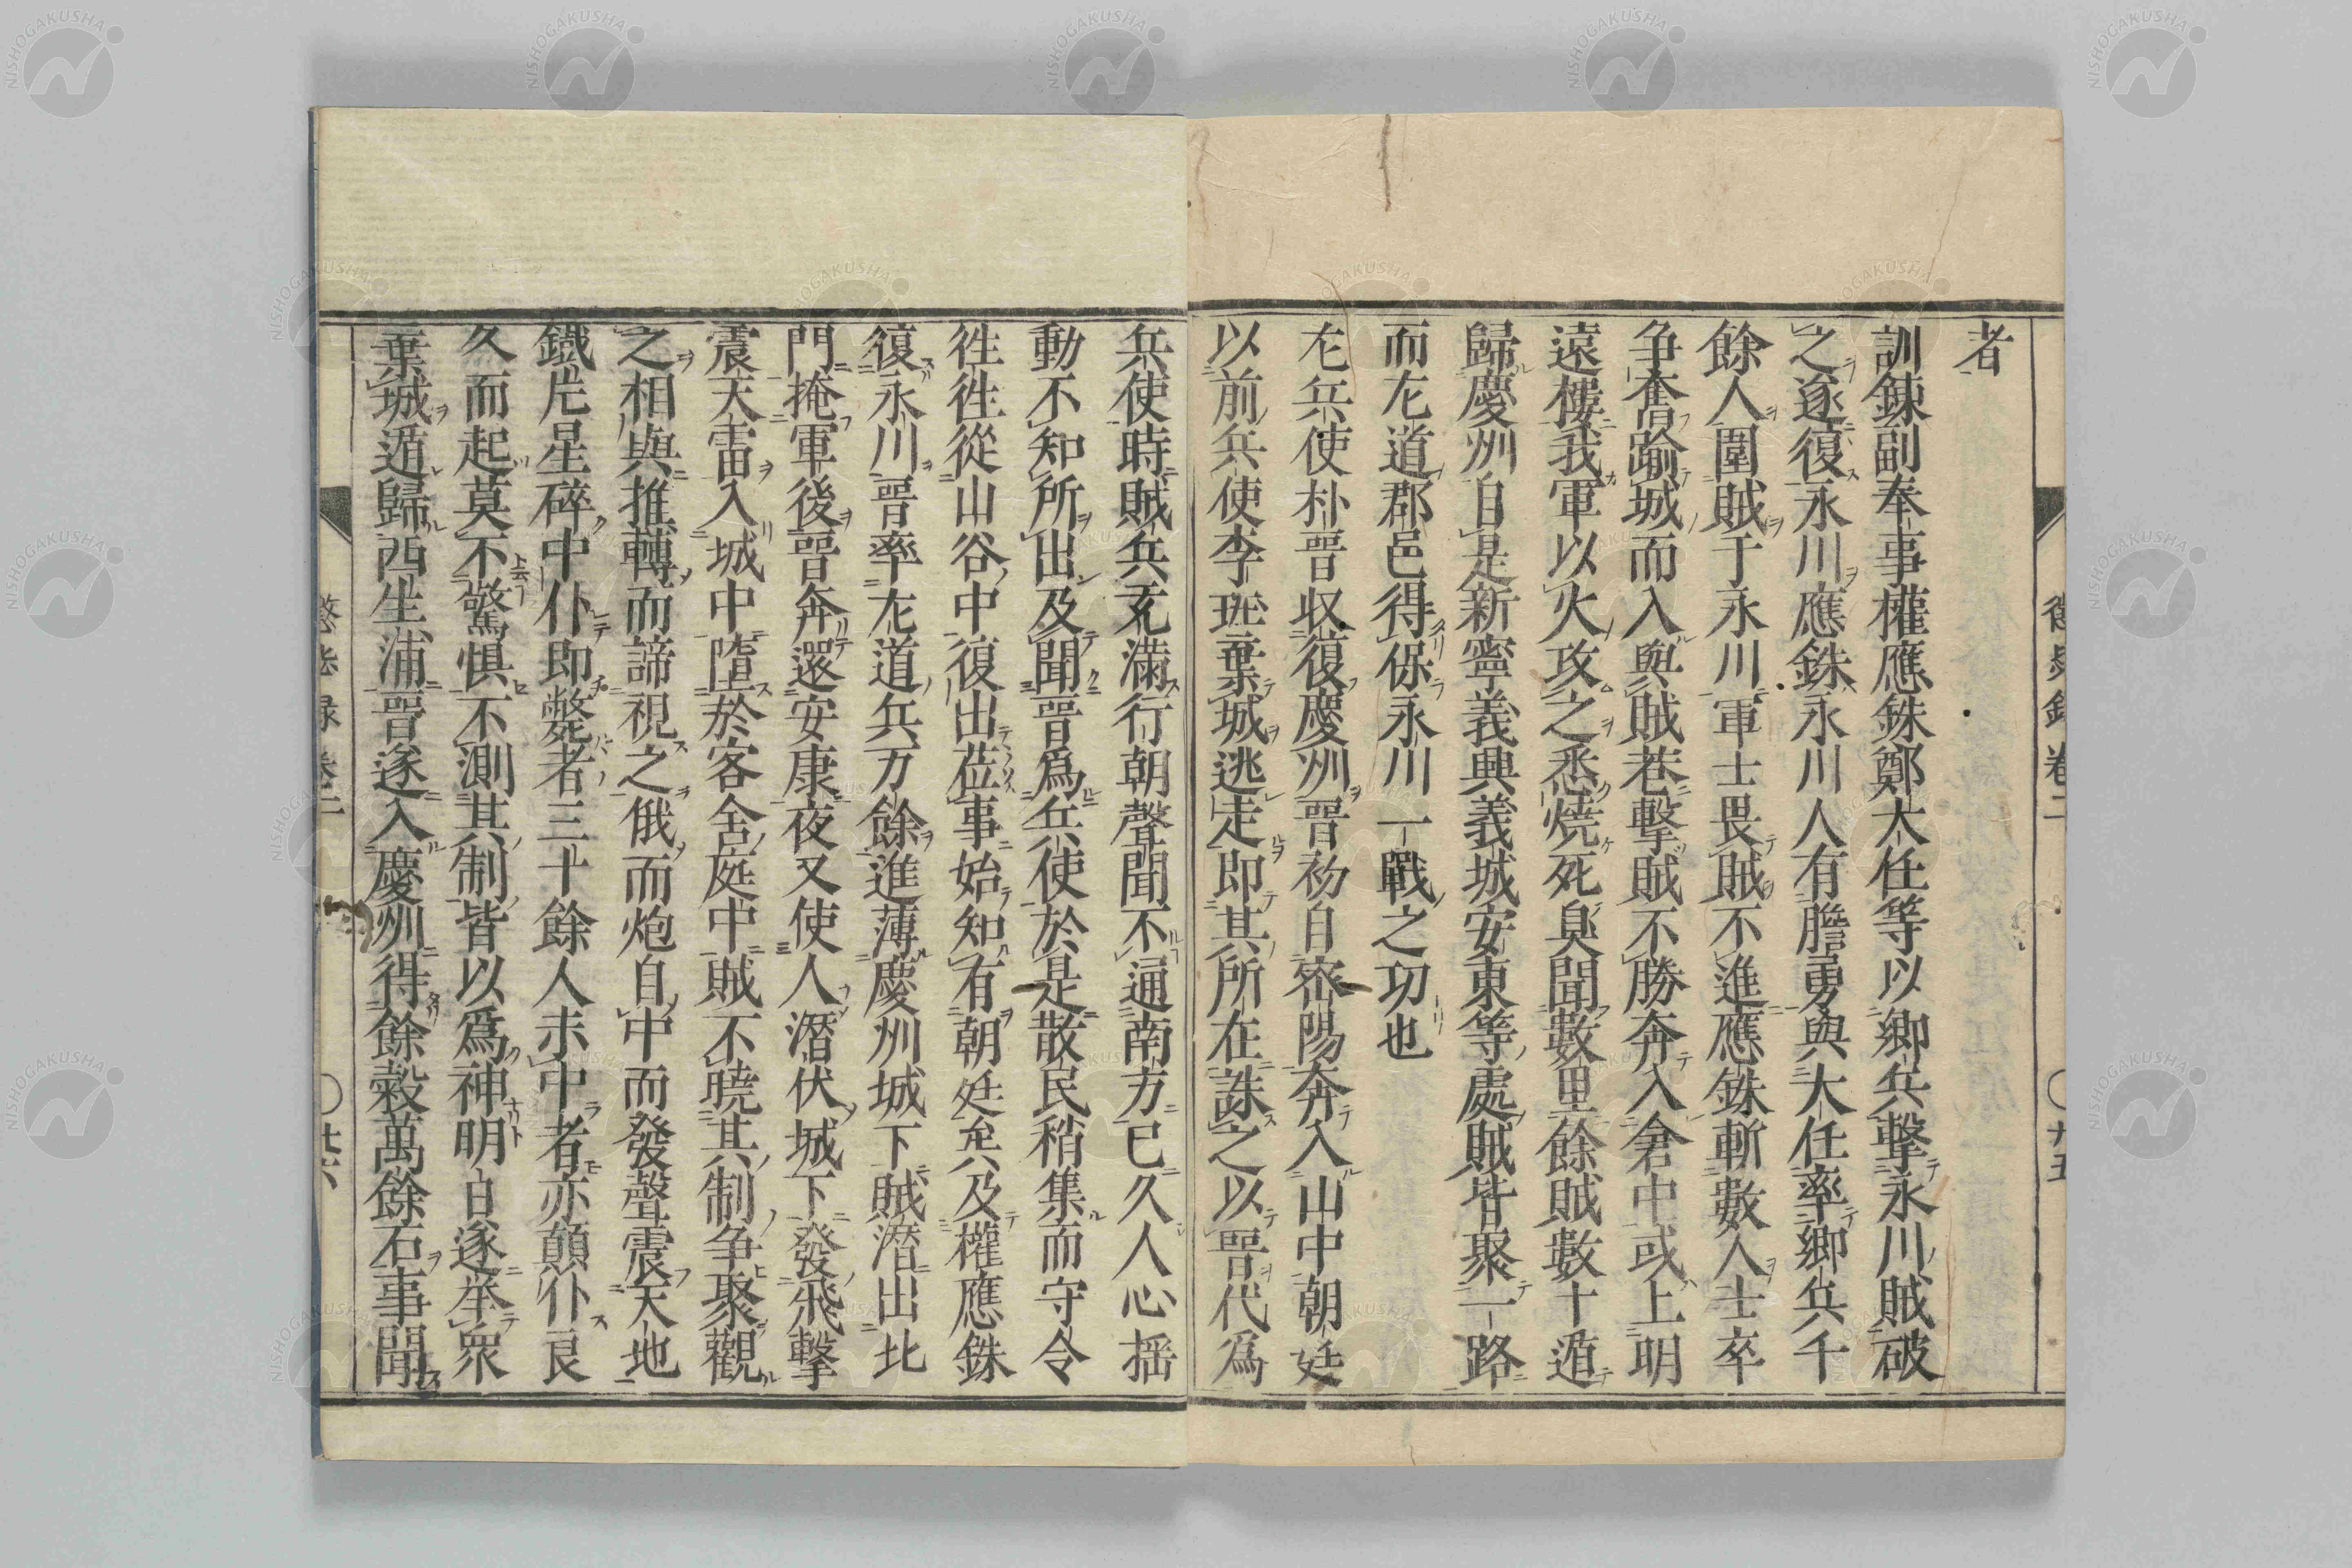 懲毖録卷二　〇廿五
者
訓鍊副奉事權應銖鄭大任等以鄉兵擊永川賊破
之遂復永川應銖永川人有膽勇與大任率鄉兵千
餘人圍賊于永川軍士畏賊不進應銖斬數人士卒
争奮踰城而入與賊巷擊賊不勝奔入倉中或上明
遠樓我軍以火攻之悉燒死臭聞數里餘賊數十遁
歸慶州自是新寧義興義城安東等處賊皆聚一路
而左道郡邑得保永川一戰之功也
左兵使朴晉収復慶州晉初自密陽奔入山中朝廷
以前兵使李珏棄城逃走即其所在誅之以晉代爲
兵使時賊兵充滿行朝聲聞不通南方已久人心揺
動不知所出及聞晉爲兵使於是散民稍集而守令
徃徃從山谷中復出莅事始知有朝廷矣及權應銖
復永川晉率左道兵万餘進薄慶州城下賊潛出北
門掩軍後晉奔還安康夜又使人潛伏城下發飛擊
震天雷入城中墮於客舍庭中賊不曉其制争聚觀
之相與推轉而諦視之俄而炮自中而發聲震天地
鐵片星碎中仆即斃者三十餘人未中者亦顛仆良
久而起莫不驚惧不測其制皆以爲神明日遂举衆
棄城遁歸西生浦晉遂入慶州得餘穀萬餘石事聞
懲毖録卷二　〇廿六
NISHOGAKUSHA